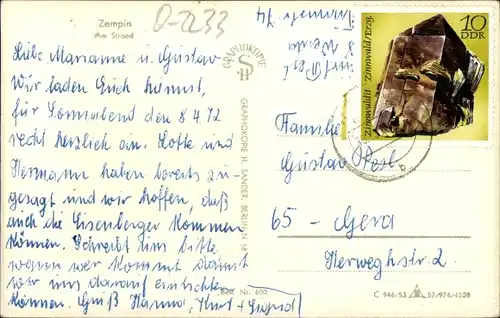 Zempin
Am Strand
Liebe Marianne u. Gustav
Wir laden Euch hiermit,
für Sonnabend den 8 4 72
recht herzlich ein. Lotte und
Hermann haben bereits zu-
gesagt und wir hoffen, daß
auch die Eisenberger kommen
können. Schreibt uns bitte
wann wer kommt damit
wir uns darauf einrichten
können. Gruß Hanna, Kurt + Sigrid
GRAPHOKOPIE
SH
GRAPHOKOPIE H. SANDER, BERLIN N 58
Best. Nr. 600
10
DDR
"Zinnwaldit" Zinnwald/Erzg.
Familie
Gustav
65 - Gera
Herweghstr. 2
C 946/53 57/974/4108